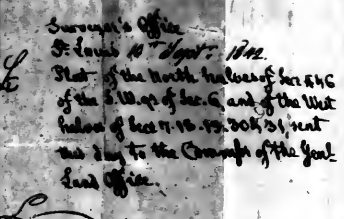 Surveyor's Office
St. Louis 10th Sept. 1842.
Plat of the North halves of Sec. 5 & 6
of the S. W. qr of Sec. 6, and of the West
halves of Secs 7. 18. 19. 30 & 31, sent
this day to the Commr of the Genl
Land Office.